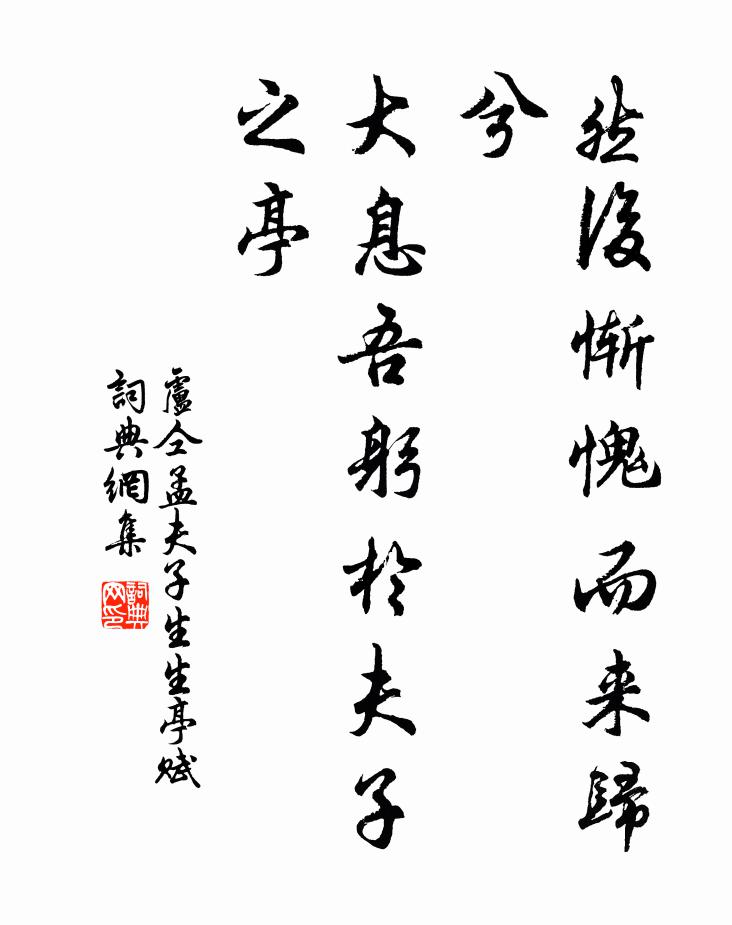 然後慚愧而来歸
兮
大息吾躬於夫子
之亭
盧仝孟夫子生生亭賦
詞典網集
詞典
网印